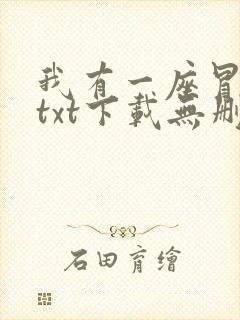 我有一座冒
txt下載無刪
石田育繪